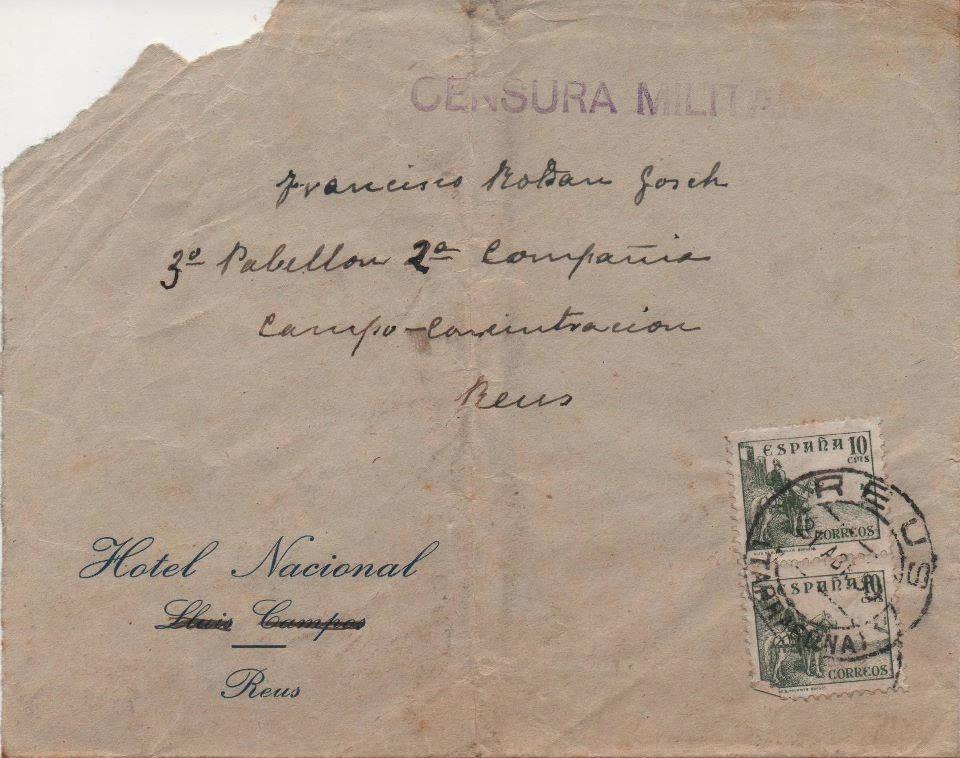 CENSURA MILITAR
Francisco Roldan Gosch
3º Pabellon 2ª Compañia
Campo-Concintracion
Reus
Hotel Nacional
Lluis Campos
Reus
ESPAÑA 10
CMS
CORREOS
ESPAÑA 10
CMS
CORREOS
REUS
AGO
(TARRAGONA)